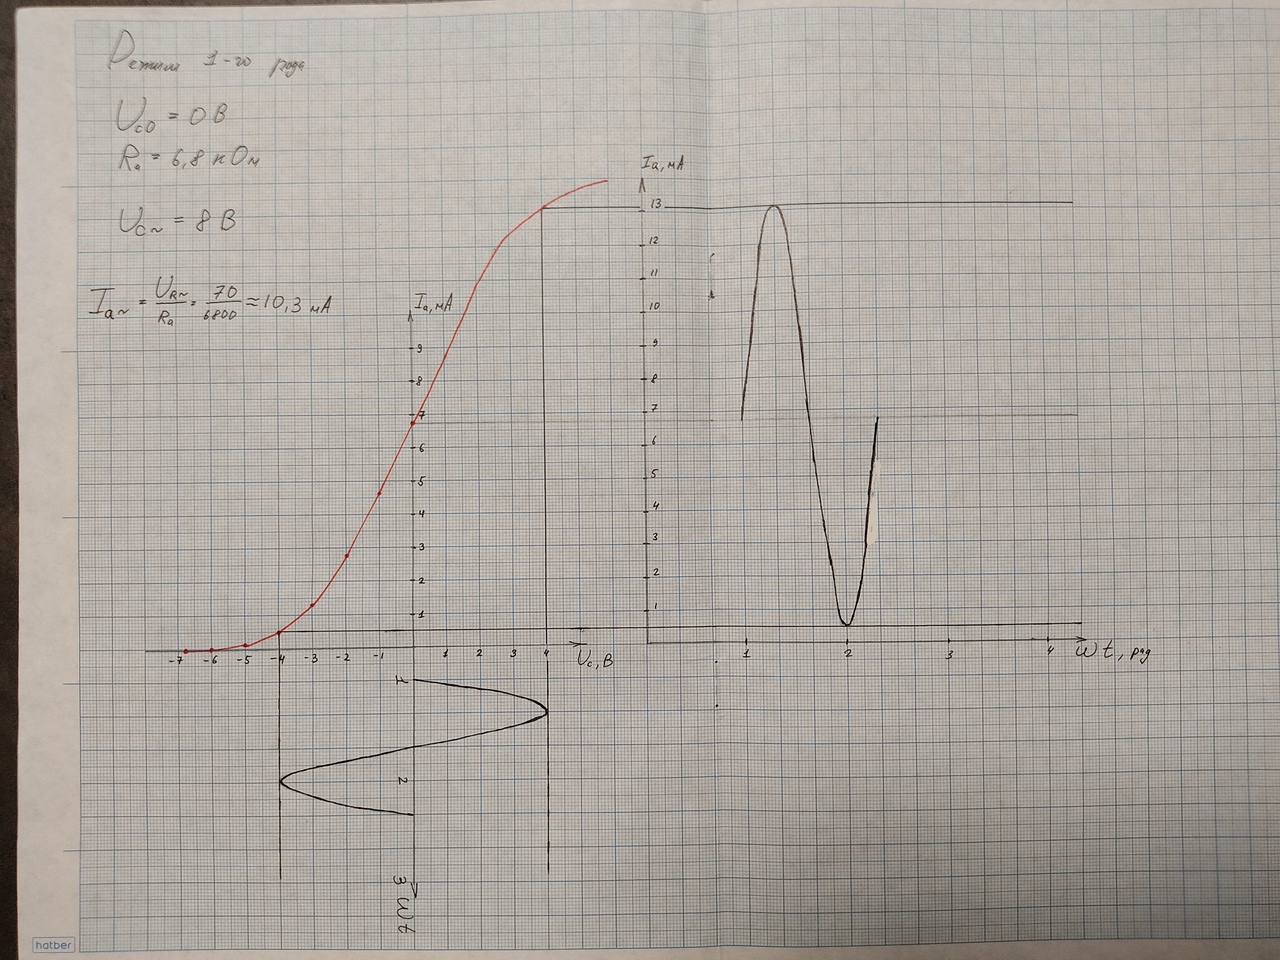 Режим 1-го рода
Uc0 = 0 В
Ra = 6,8 кОм
Uc~ = 8 В
Ia~ = UR~/Ra = 70/6800 ≈ 10,3 мА
Ia, мА
9
8
7
6
5
4
3
2
1
-7 -6 -5 -4 -3 -2 -1 1 2 3 4 Uc, В
1
2
3 ωt
Ia, мА
13
12
11
10
9
8
7
6
5
4
3
2
1
1 2 3 4 ωt, рад
hatber